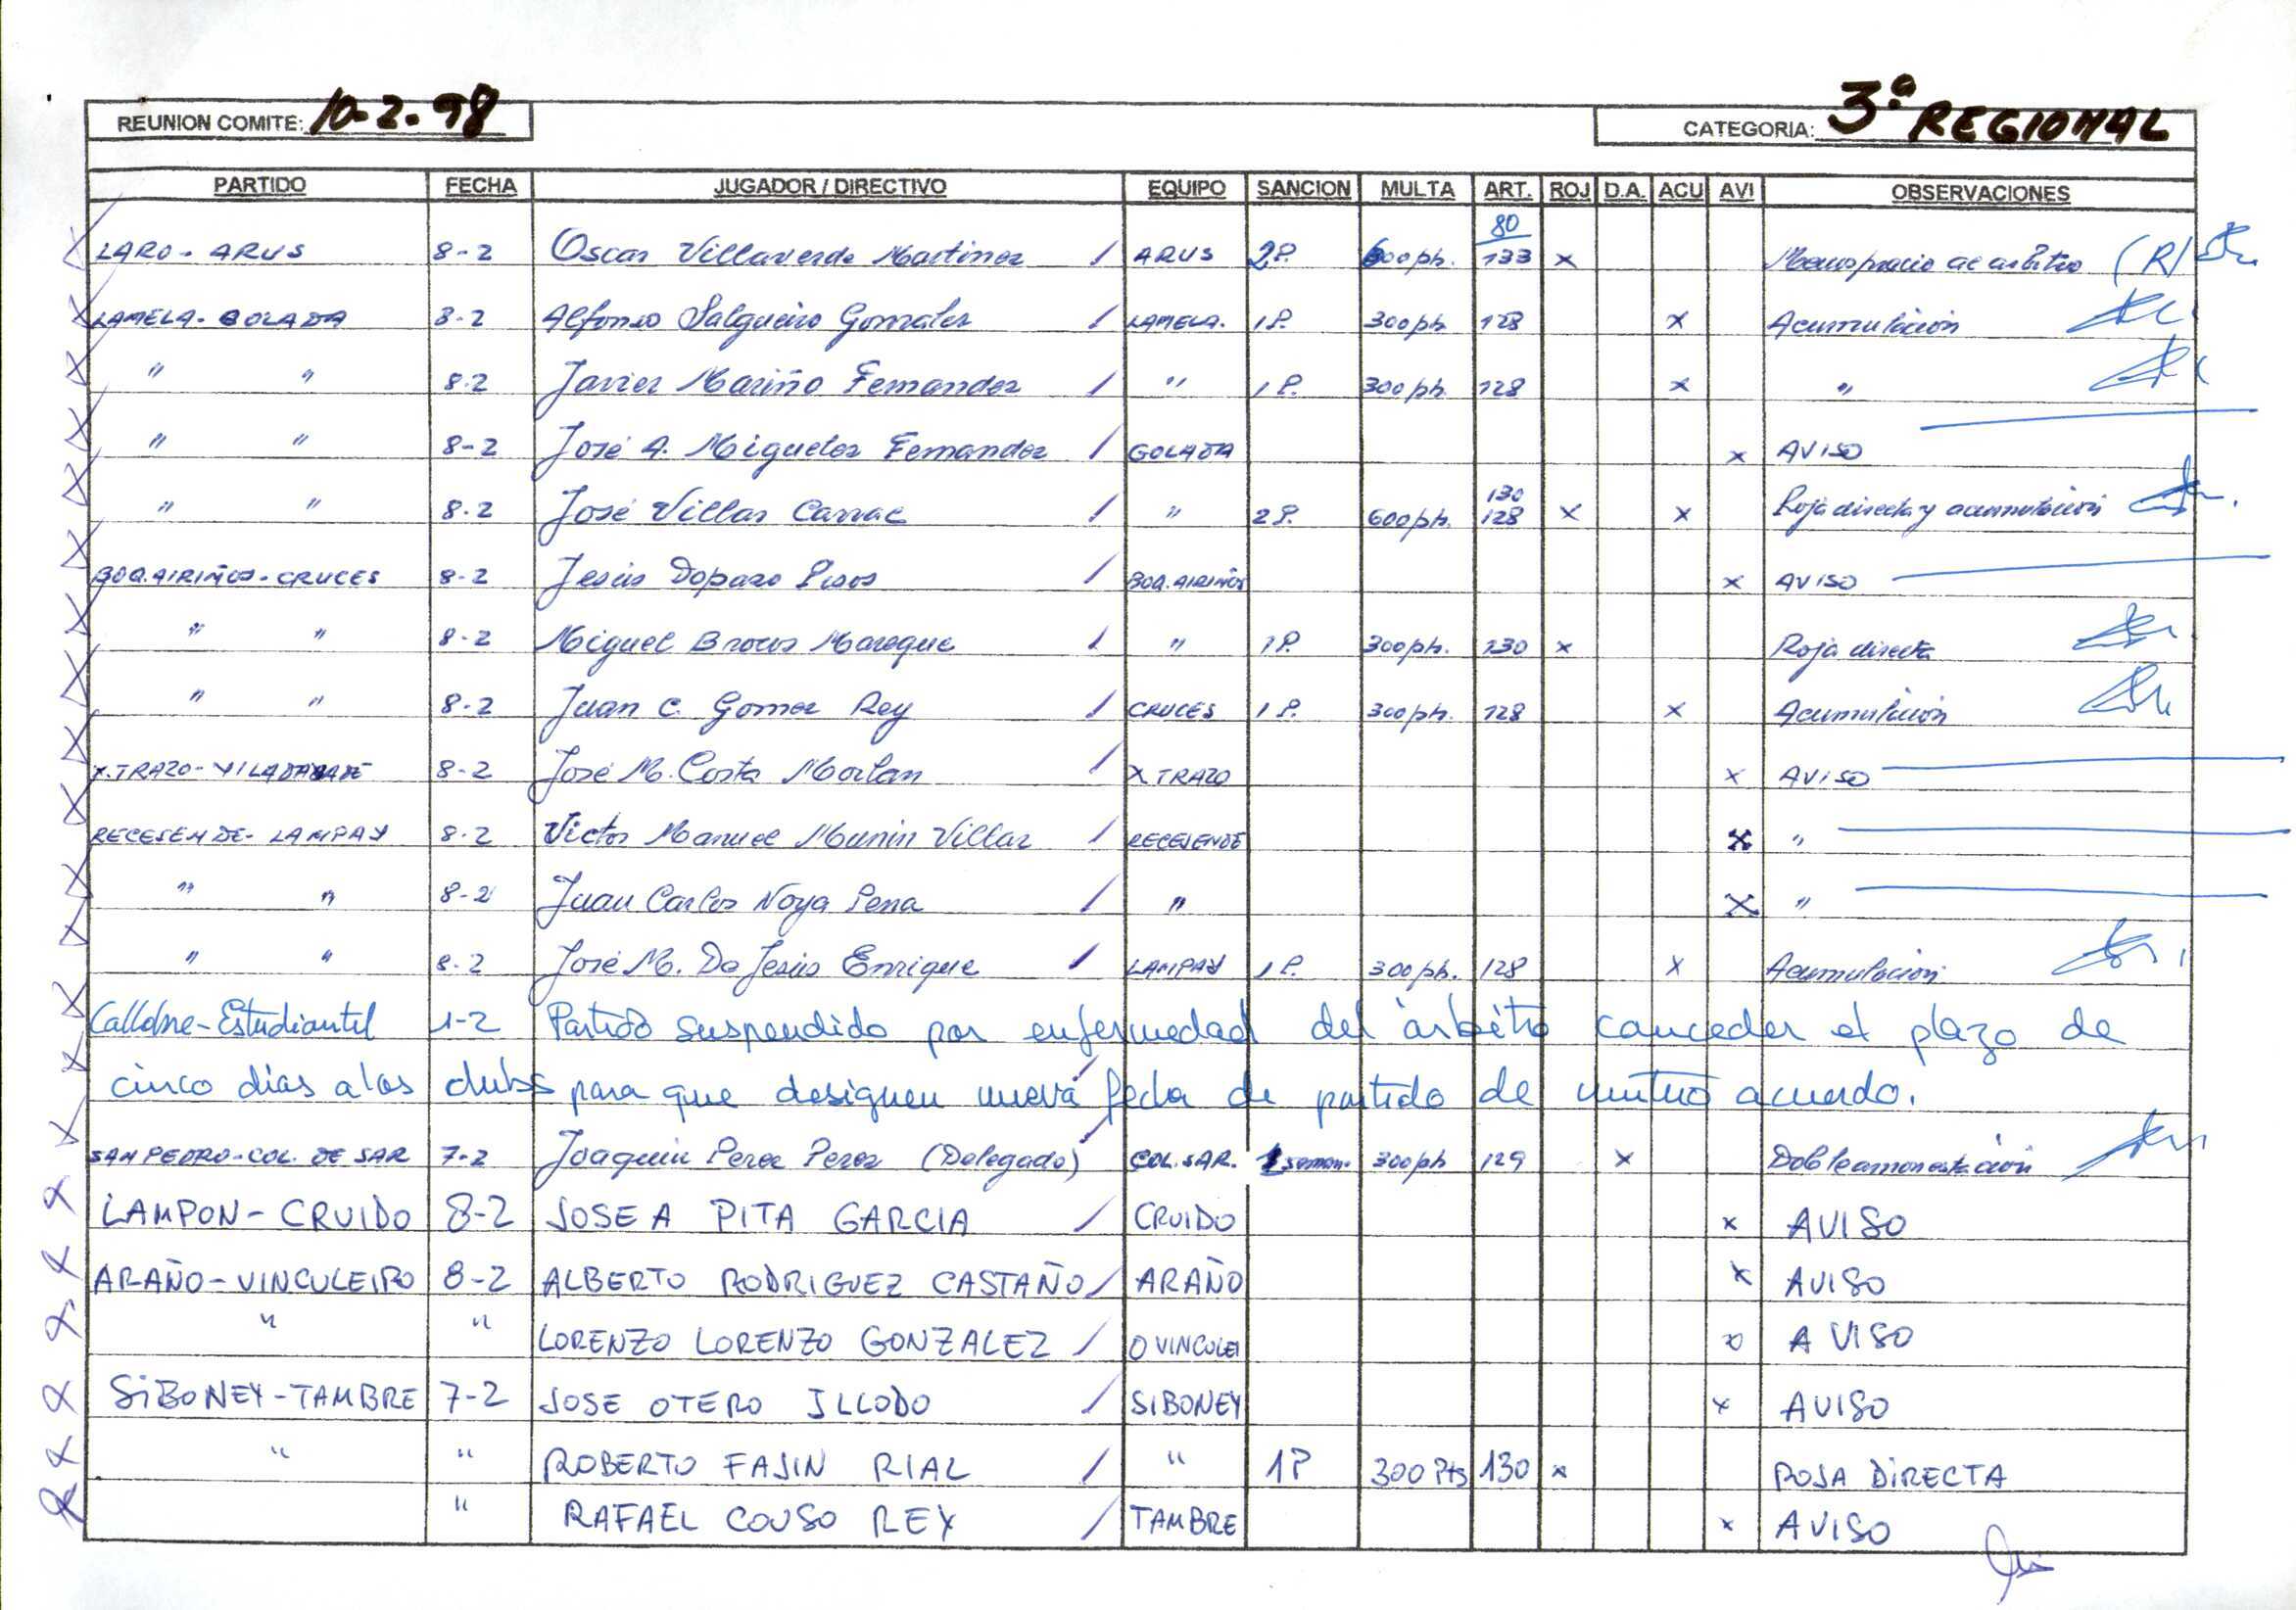 REUNION COMITE: 10-2-98 CATEGORIA: 3ª REGIONAL
PARTIDO FECHA JUGADOR / DIRECTIVO EQUIPO SANCION MULTA ART. ROJ D.A. ACU AVI OBSERVACIONES
80
LARO - ARUS 8-2 Oscar Villaverde Martinez / ARUS 2P. 600 pts. 133 x Menosprecio al arbitro (R)
LAMELA - GOLADA 8-2 Alfonso Salgueiro Gonzalez / LAMELA. 1P. 300 pts. 128 x Acumulación
" " 8-2 Javier Mariño Fernandez / " 1P. 300 pts. 128 x "
" " 8-2 José A. Miguelez Fernandez / GOLADA x AVISO
130
" " 8-2 José Villar / " 2P. 600 pts. 128 x x Roja directa y acumulación
BOQ. AIRIÑOS - CRUCES 8-2 Jesús Dopazo / BOQ. AIRIÑOS x AVISO
" " 8-2 Miguel / " 1P. 300 pts. 130 x Roja directa
" " 8-2 Juan C. Gomez Rey / CRUCES 1P. 300 pts. 128 x Acumulación
X. TRAZO - 8-2 José M. Costa / X TRAZO x AVISO
RECESENDE - LAMPAY 8-2 Victor Manuel Munin Villar / RECESENDE x "
" " 8-2 Juan Carlos Noya Pena / " x "
" " 8-2 José M. De Jesús Enrique / LAMPAY 1P. 300 pts. 128 x Acumulación
Callobre - Estudiantil 1-2 Partido suspendido por enfermedad del árbitro conceder el plazo de
cinco días a los clubs para que designen nueva fecha de partido de mutuo acuerdo.
SAN PEDRO - COL. DE SAR 7-2 Joaquin Perez Perez (Delegado) COL. SAR. 1 seman. 300 pts 129 x Doble amonestación
LAMPON - CRUIDO 8-2 JOSE A PITA GARCIA / CRUIDO x AVISO
ARAÑO - VINCULEIRO 8-2 ALBERTO RODRIGUEZ CASTAÑO / ARAÑO x AVISO
" " LORENZO LORENZO GONZALEZ / O VINCULEI x AVISO
SIBONEY - TAMBRE 7-2 JOSE OTERO ILLODO / SIBONEY x AVISO
" " ROBERTO FAJIN RIAL / " 1P 300 Pts 130 x ROJA DIRECTA
" RAFAEL COUSO REY / TAMBRE x AVISO